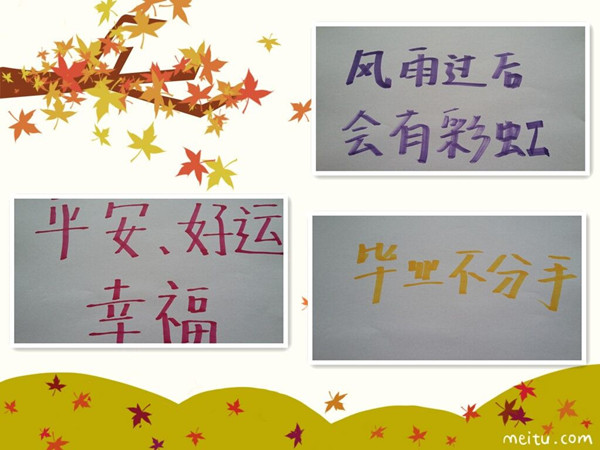 风雨过后
会有彩虹
平安、好运
幸福
毕业不分手
meitu.com